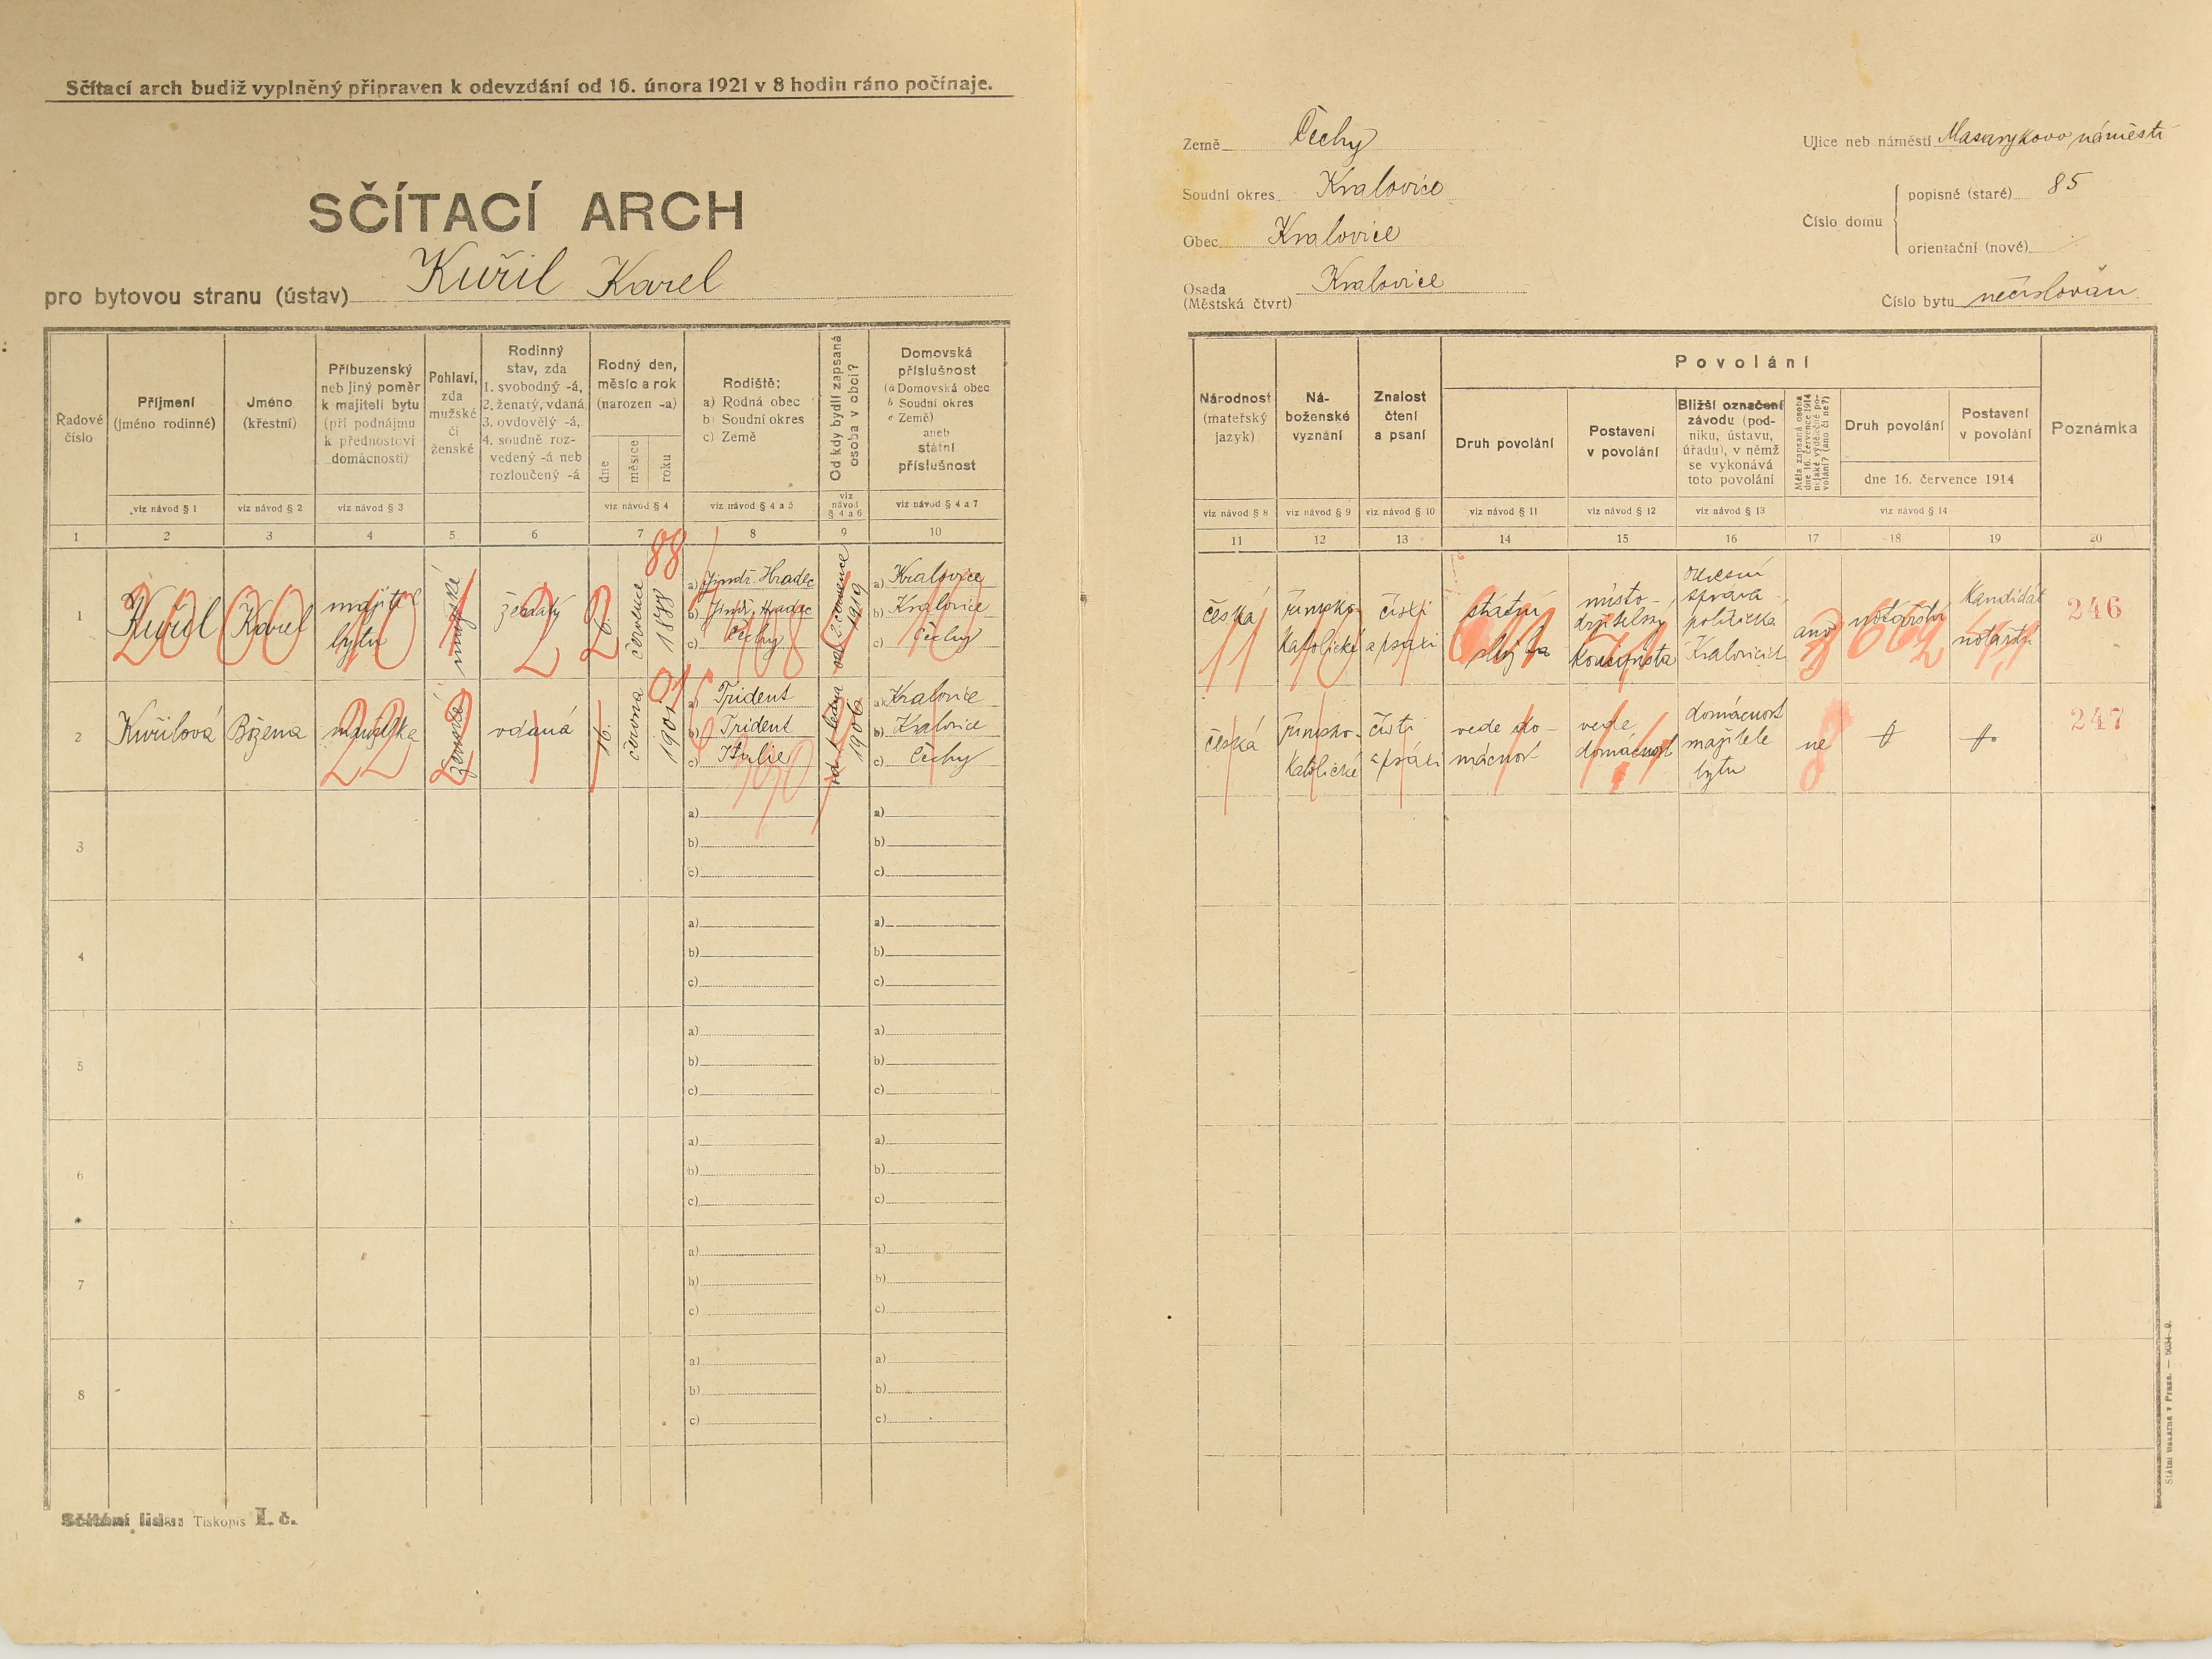 Sčítací arch budiž vyplněný připraven k odevzdání od 16. února 1921 v 8 hodin ráno počínaje.
SČÍTACÍ ARCH
pro bytovou stranu (ústav) Kuřil Karel
Země Čechy
Soudní okres Kralovice
Obec Kralovice
Osada Kralovice
(Městská čtvrt)
Ulice neb náměstí Masarykovo náměstí
Číslo domu
popisné (staré) 85
orientační (nové)
Číslo bytu nečíslován
Řadové
číslo
Příjmení
(jméno rodinné)
Jméno
(křestní)
Příbuzenský
neb jiný poměr
k majiteli bytu
(při podnájmu
k přednostovi
domácnosti)
Pohlaví,
zda
mužské
či
ženské
Rodinný
stav, zda
1. svobodný -á,
2. ženatý, vdaná
3. ovdovělý -á,
4. soudně roz-
vedený -á neb
rozloučený -á
Rodný den,
měsíc a rok
(narozen -a)
dne
měsíce
roku
Rodiště:
a) Rodná obec
b) Soudní okres
c) Země
Od kdy bydlí zapsaná
osoba v obci?
Domovská
příslušnost
(a Domovská obec
b Soudní okres
c Země)
aneb
státní
příslušnost
viz návod § 1
viz návod § 2
viz návod § 3
viz návod § 4
viz návod § 4 a 5
viz
návod
§ 4 a 6
viz návod § 4 a 7
1 2 3 4 5 6 7 8 9 10
Národnost
(mateřský
jazyk)
Ná-
boženské
vyznání
Znalost
čtení
a psaní
Povolání
Druh povolání
Postavení
v povolání
Bližší označení
závodu (pod-
niku, ústavu,
úřadu), v němž
se vykonává
toto povolání
Měla zapsaná osoba
dne 16. července 1914
nějaké výdělečné po-
volání? (ano či ne?)
Druh povolání
Postavení
v povolání
dne 16. července 1914
Poznámka
viz návod § 8
viz návod § 9
viz návod § 10
viz návod § 11
viz návod § 12
viz návod § 13
viz návod § 14
11 12 13 14 15 16 17 18 19 20
1
Kuřil
20
Karel
00
majitel
bytu
10
mužské
1
ženatý
2
6.
2
července
1888
88
a) Jindř. Hradec
b) Jindř. Hradec
c) Čechy
od 2. července
1919
a) Kralovice
b) Kralovice
c) Čechy
česká
římsko
katolické
čísti
a psáti
státní
služba
místo-
držitelský
koncipista
okresní
správa
politická
Kralovicích
ano
notářství
kandidát
notářství
246
2
Kuřilová
Božena
manželka
22
ženské
2
vdaná
16.
června
1901
01
a) Trident
b) Trident
c) Italie
od 1. ledna
1906
a) Kralovice
b) Kralovice
c) Čechy
česká
římsko-
katolické
čísti
a psáti
vede do-
mácnost
vede
domácnost
domácnost
majitele
bytu
ne
8
247
3
a)
b)
c)
a)
b)
c)
4
a)
b)
c)
a)
b)
c)
5
a)
b)
c)
a)
b)
c)
6
a)
b)
c)
a)
b)
c)
7
a)
b)
c)
a)
b)
c)
8
a)
b)
c)
a)
b)
c)
Sčítání lidu: Tiskopis I. č.
Státní tiskárna v Praze. —